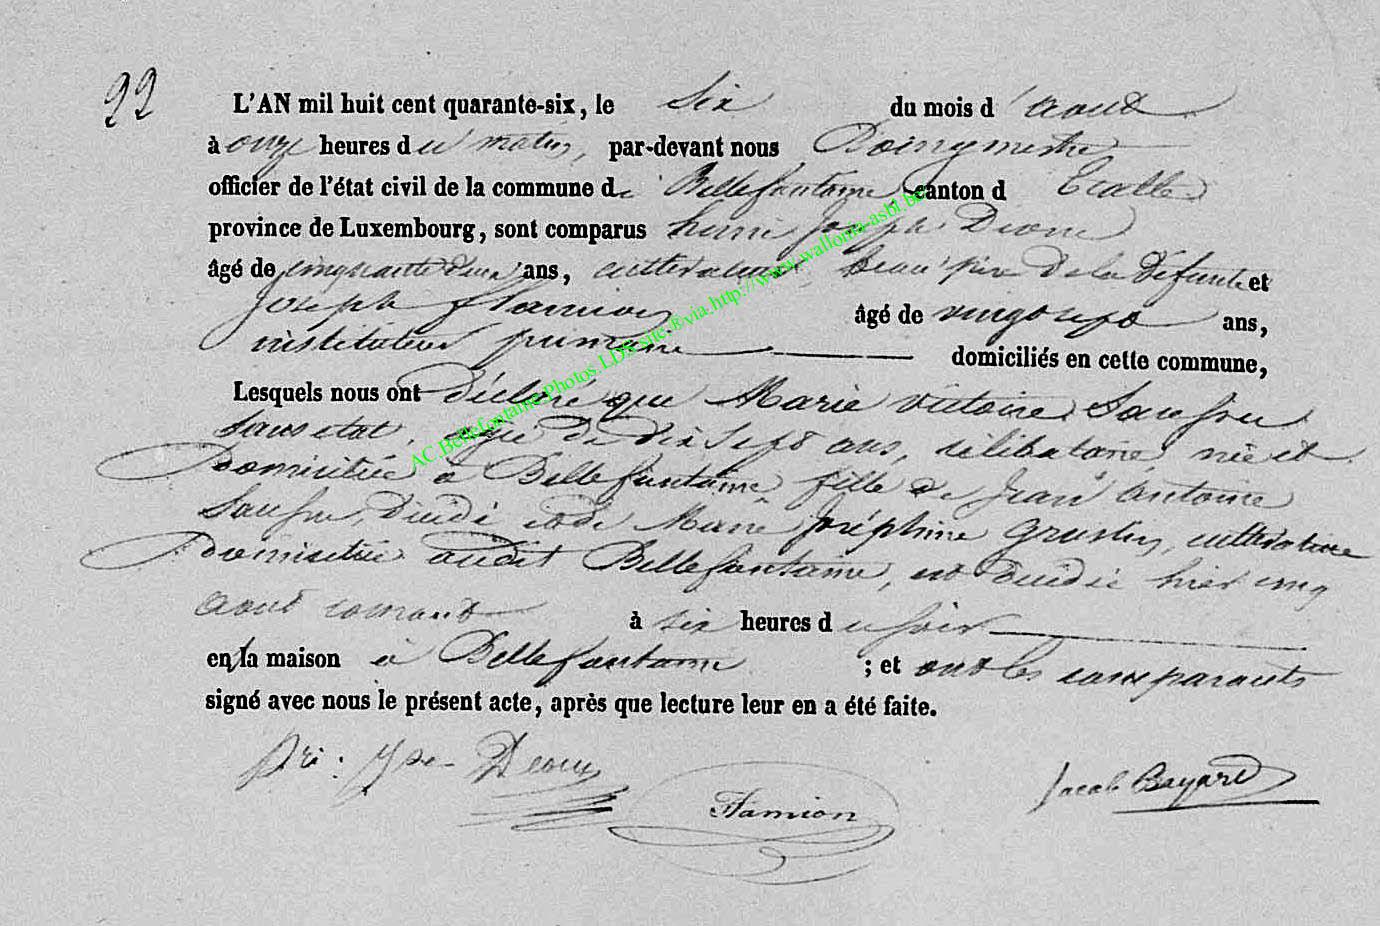 22
L'AN mil huit cent quarante-six, le six du mois d'aout
à onze heures du matin, par-devant nous Bourgmestre
officier de l'état civil de la commune de Bellefontaine, canton d'Etalle
province de Luxembourg, sont comparus henri Joseph
âgé de cinquante deux ans, cultivateur, beau père de la défunte et
Joseph Flamion âgé de vingt sept ans,
instituteur primaire domiciliés en cette commune,
Lesquels nous ont déclaré que Marie Victoire
sans etat, agée de dix sept ans, célibataire, née et
domiciliée à Bellefontaine fille de Jean Antoine
décédé et de Marie Joséphine cultivatrice
domiciliée audit Bellefontaine, est décédée hier cinq
aout courant à six heures du soir
en la maison à Bellefontaine ; et ont les comparants
signé avec nous le présent acte, après que lecture leur en a été faite.
Flamion
Jacob Bayard
AC.Bellefontaine.Photos.LDS.site.®via.http://www.wallonia-asbl.be/